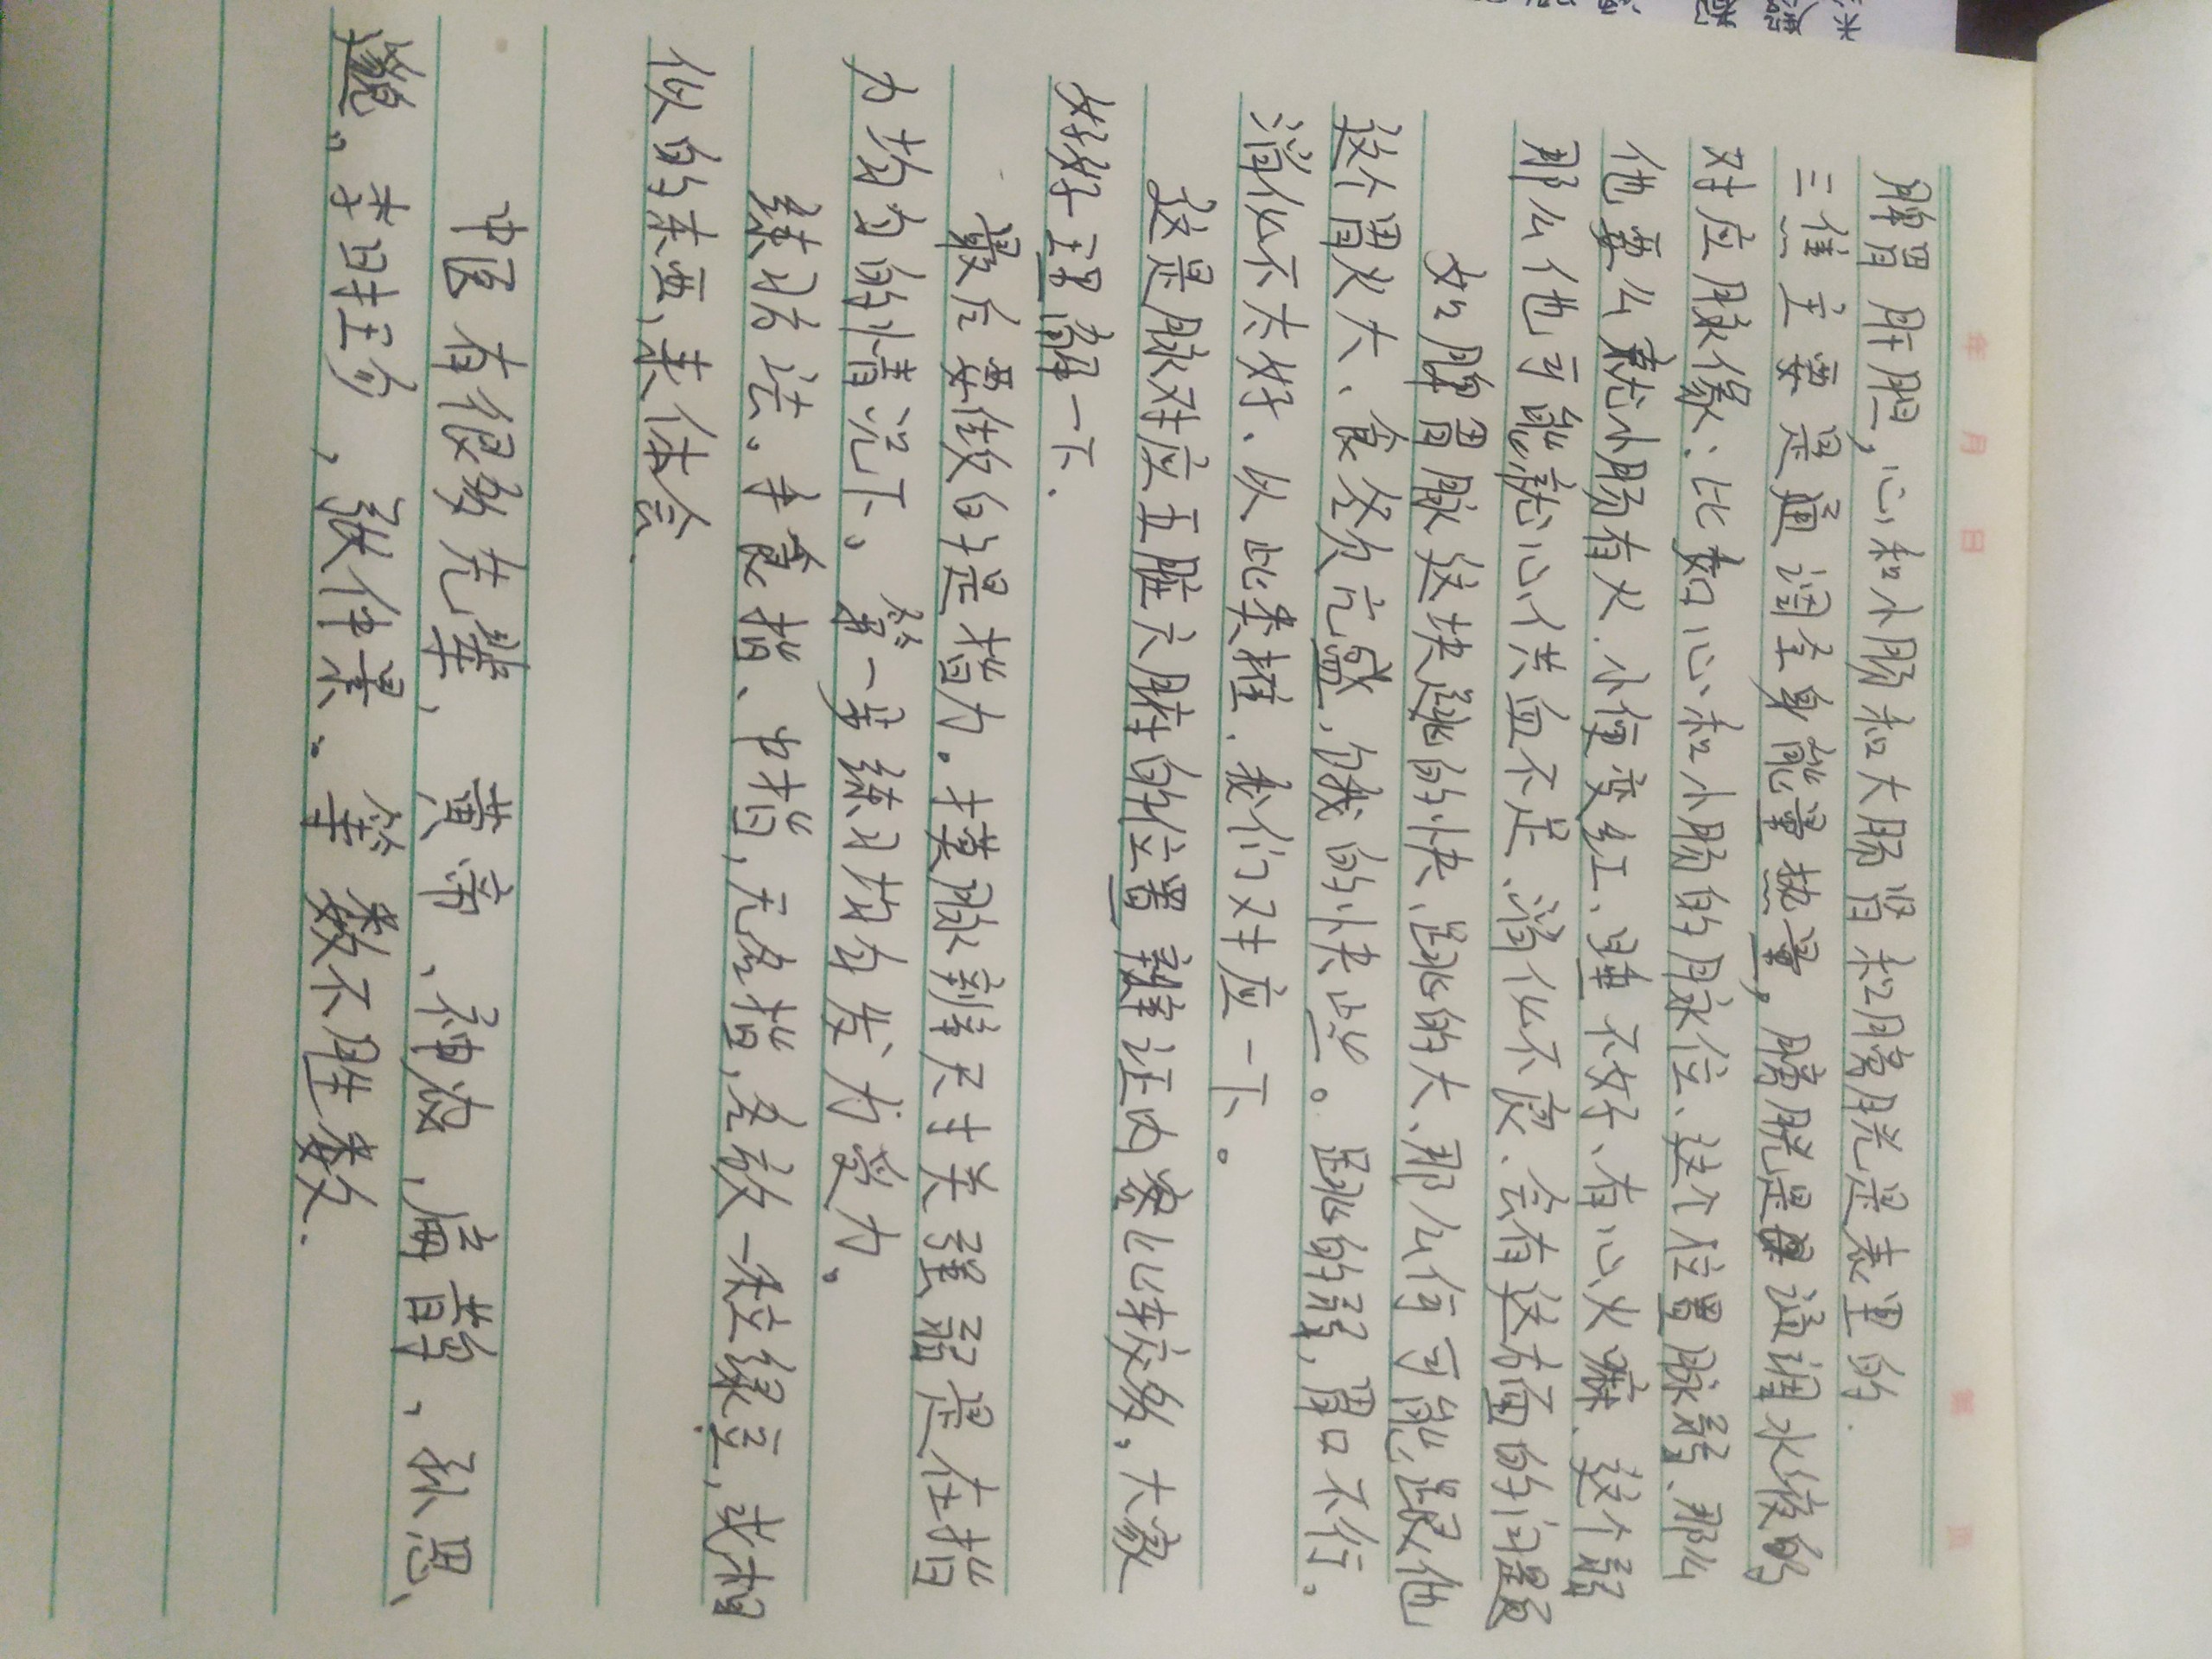 年 月 日
第 页
脾胃肝胆,心和小肠和大肠肾和膀胱是表里的.
三焦主要是通调全身能量热量,膀胱是通调水液的
对应脉像:比如心和小肠的脉位、这个位置脉弱、那么
他要么就小肠有火.小便变红、睡不好、有心火嘛、这个弱
那么他可能就心供血不足、消化不良、会有这方面的问题
如脾胃脉这块跳的快、跳的大、那么何可能跟他
这个胃火大、食欲亢盛,饿的快些。跳的弱,胃口不行。
消化不太好、以此类推、我们对应一下。
这是脉对应五脏六腑的位置 辩证内容比较多,大家
好好理解一下.
最后要做的是指力。摸脉到寸尺关强弱是在指
力均匀的情况下。第一步练习均匀发力受力。
练习方法。拿食指、中指,无名指,各放一粒绿豆,或相
似的东西,来体会.
中医有很多先辈、黄帝、神农,扁鹊、孙思
邈。李时珍,张仲景、等数不胜数.